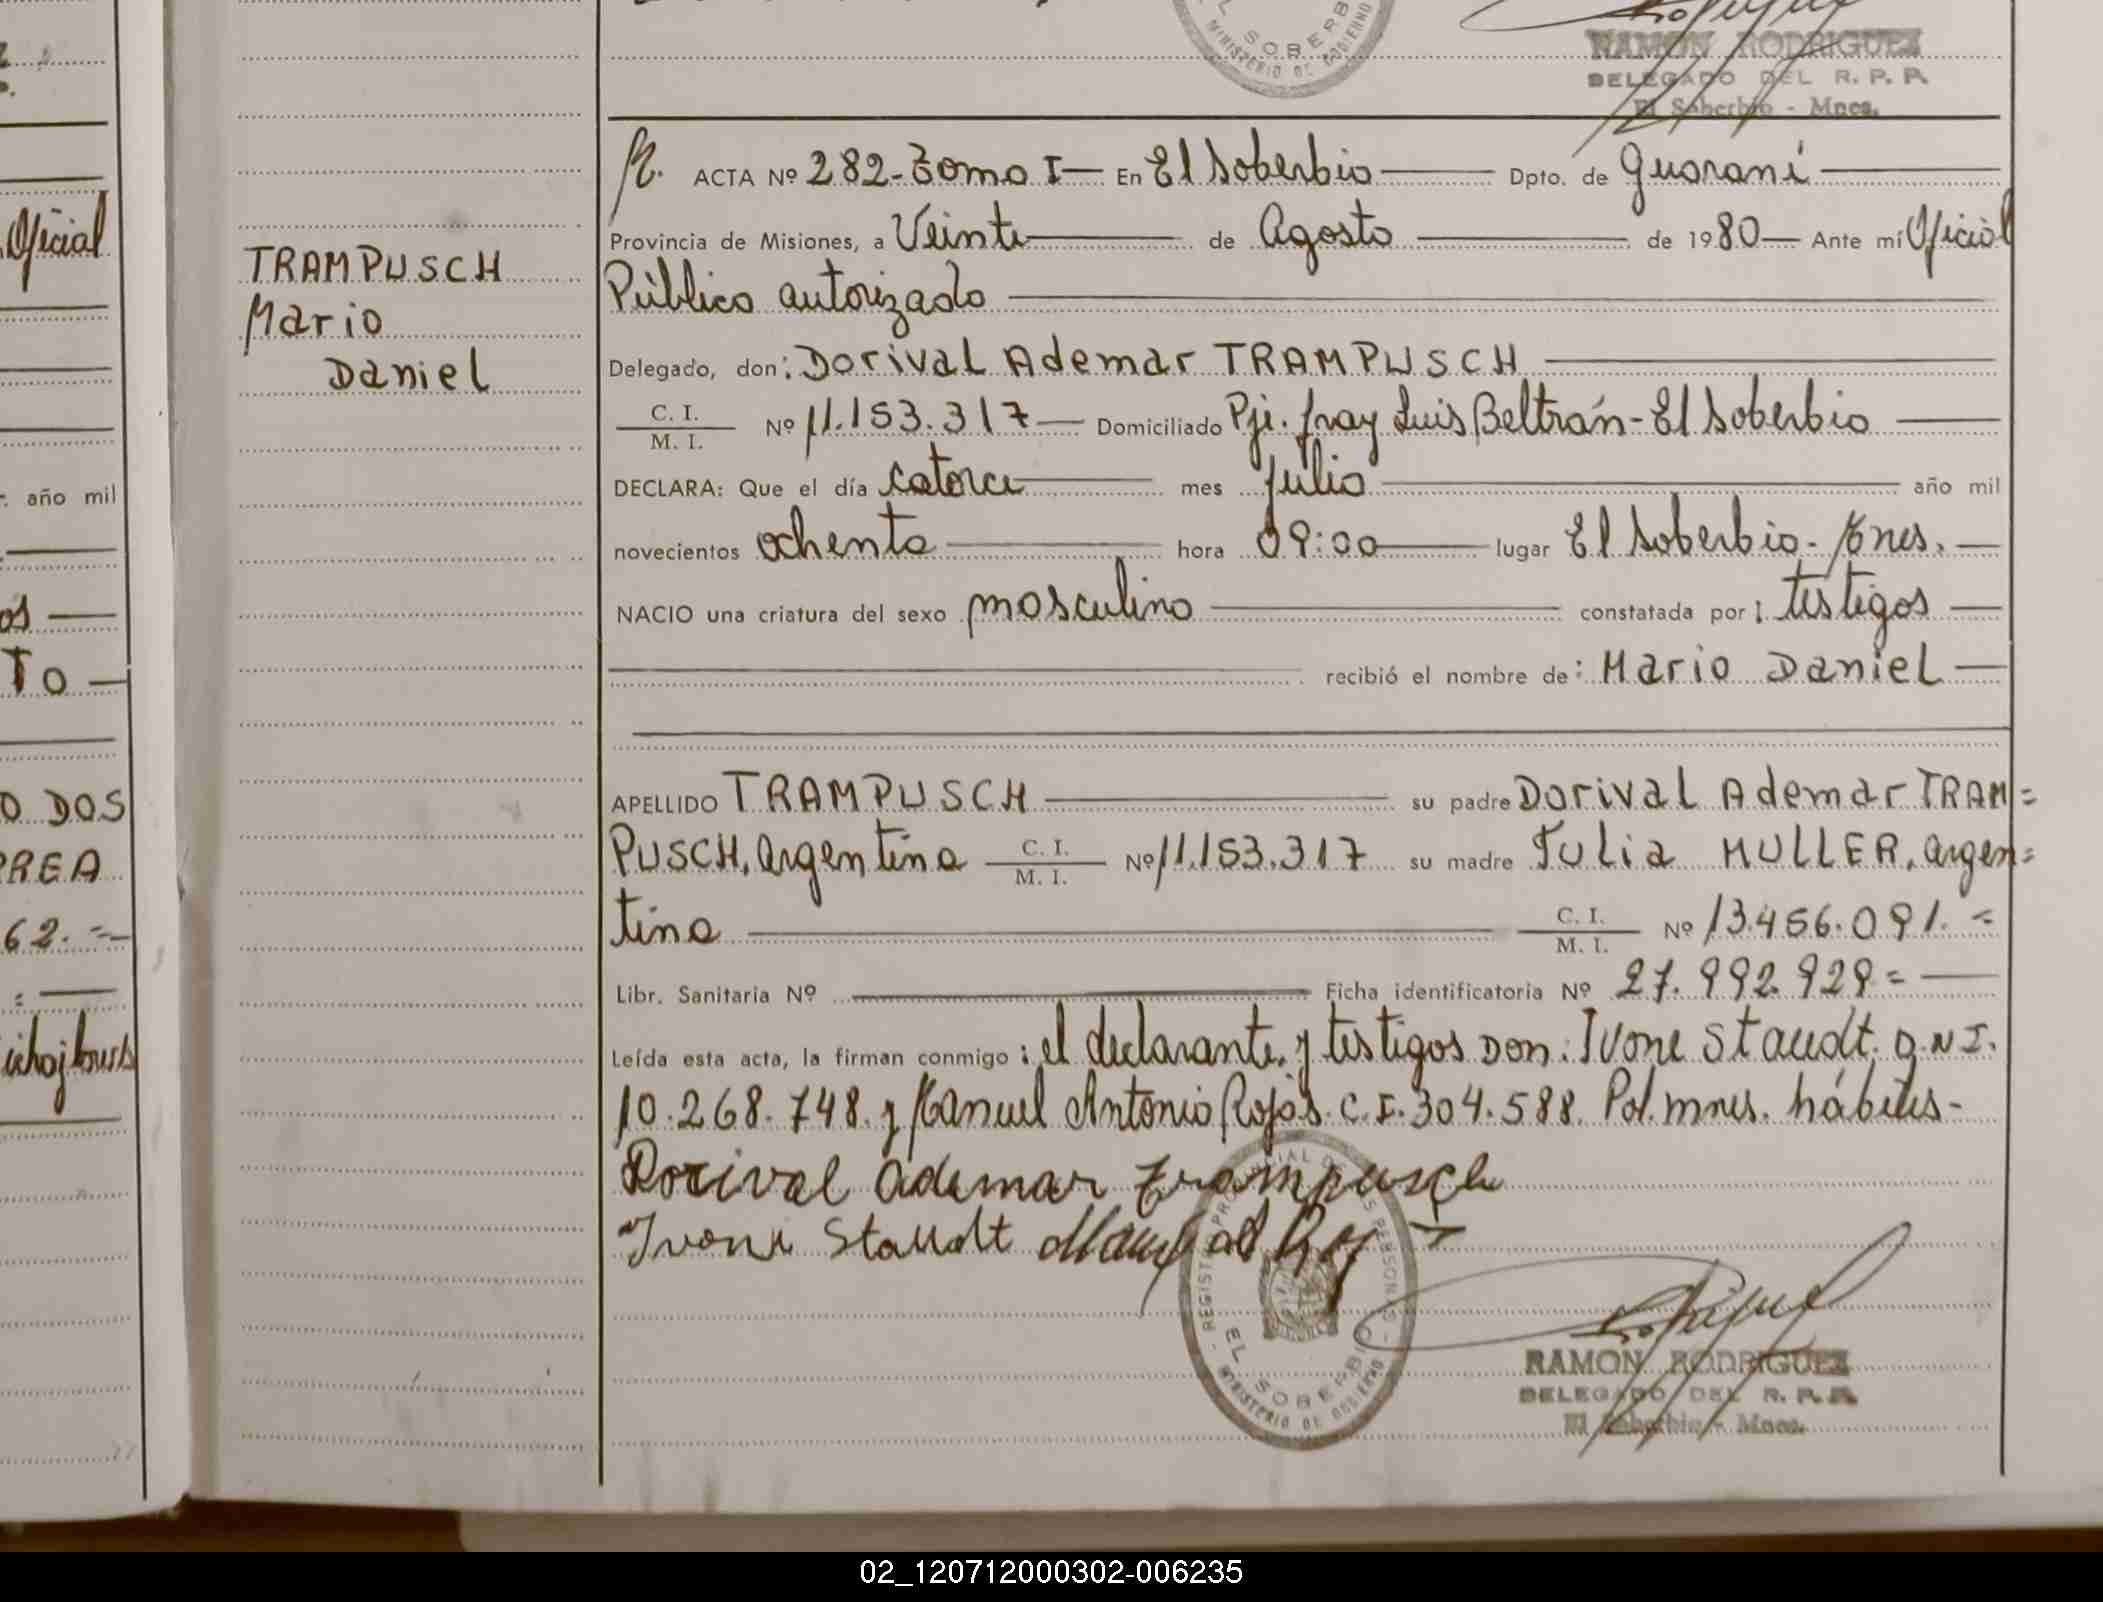 EL SOBERBIO
MINISTERIO DE GOBIERNO
RAMON RODRIGUEZ
DELEGADO DEL R. P. P.
El Soberbio - Mnes.
Oficial
año mil
os
TO
O DOS
REA
62. =
TRAMPUSCH
Mario
Daniel
ACTA Nº 282-Tomo I- En El Soberbio Dpto. de Guaraní
Provincia de Misiones, a Veinte de Agosto de 1980 Ante mí Oficial
Público autorizado
Delegado, don: Dorival Ademar TRAMPUSCH
C. I.
M. I. Nº 11.153.317 Domiciliado Pje. fray Luis Beltrán-El Soberbio
DECLARA: Que el día catorce mes julio año mil
novecientos ochenta hora 09:00 lugar El Soberbio-Mnes.
NACIO una criatura del sexo masculino constatada por: testigos
recibió el nombre de: Mario Daniel
APELLIDO TRAMPUSCH su padre Dorival Ademar TRAM=
PUSCH, argentino C. I. M. I. Nº 11.153.317 su madre Julia MULLER, argen=
tina C. I. M. I. Nº 13.456.091. =
Libr. Sanitaria Nº Ficha identificatoria Nº 27.992.929=
Leída esta acta, la firman conmigo: el declarante, y testigos Don: Ivone Staudt. D.N.I.
10.268.748. y Manuel Antonio Rojas. C.I. 304.588. Pol. mnes. hábiles-
Dorival Ademar Trampusch
Ivone Staudt
REGISTRO PROVINCIAL DE LAS PERSONAS
EL SOBERBIO
MINISTERIO DE GOBIERNO
RAMON RODRIGUEZ
DELEGADO DEL R. P. P.
El Soberbio - Mnes.
02_120712000302-006235